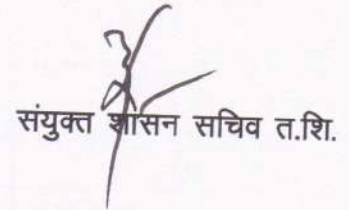 संयुक्त शासन सचिव त.शि.